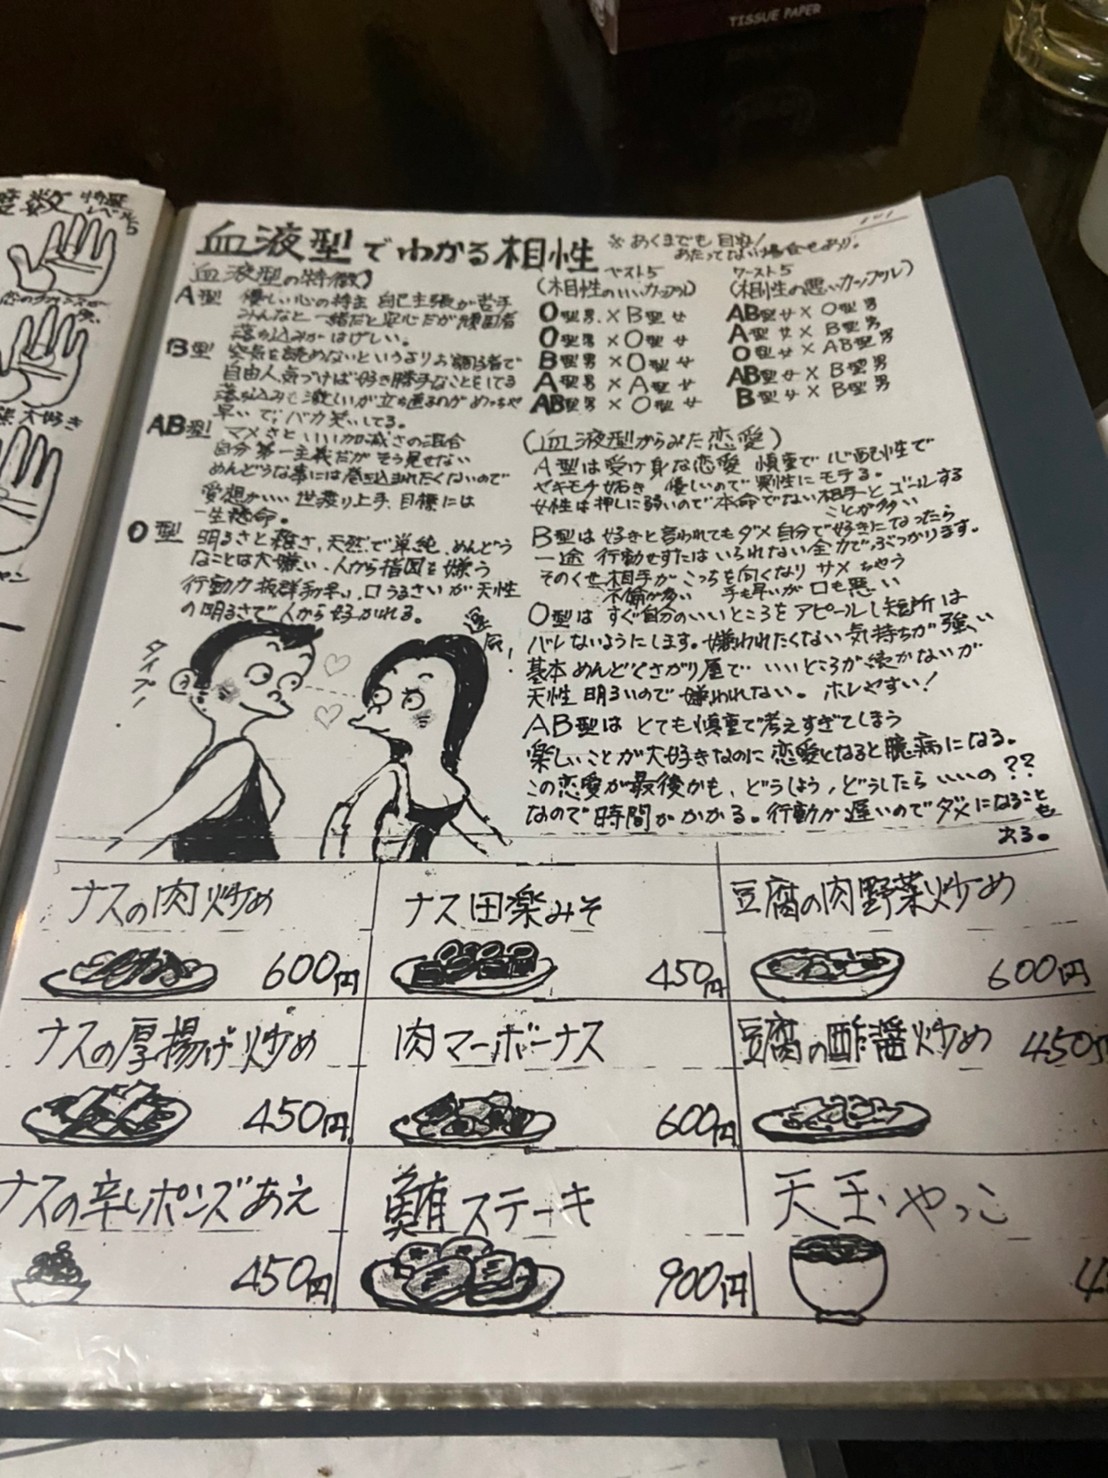 TISSUE PAPER
度数
大好き
血液型でわかる相性
※あくまでも目安!
あたってない場合もあり。
血液型の特徴)
A型 優しい心の持主 自己主張が苦手
みんなと一緒だと安心だが頑固者
落ち込みがはげしい。
B型 空気を読めないというより お調子者で
自由人、気づけば好き勝手なことをしてる
落ち込みも激しいが立ち直るのがめっちゃ
早いで、バカ笑いしてる。
AB型 マメさといい加減さの混合
自分第一主義だがそう見せない
めんどうな事には巻き込まれたくないので
愛想がいい 世渡り上手、目標には
一生懸命。
O型 明るさと雑さ、天然で単純、めんどう
なことは大嫌い、人から指図を嫌う
行動力抜群 手早い、口うるさいが天性
の明るさで人から好かれる。
ベスト5
(相性のいいカップル)
O型男 × B型女
O型男 × O型女
B型男 × O型女
A型男 × A型女
AB型男 × O型女
ワースト5
(相性の悪いカップル)
AB型女 × O型男
A型女 × B型男
O型女 × AB型男
AB型女 × B型男
B型女 × B型男
(血液型からみた恋愛)
A型は受け身な恋愛 慎重で心配性で
ヤキモチ妬き 優しいので異性にモテる。
女性は押しに弱いので本命でない相手とゴールする
ことが多い
B型は好きと言われてもダメ自分で好きになったら
一途 行動せずにはいられない全力でぶつかります。
そのくせ相手がこっちを向くなり サメちゃう
不倫が多い 手も早いが口も悪い
O型は すぐ自分のいいところをアピールし短所は
バレないようにします。嫌われたくない気持ちが強い
基本めんどくさがり屋で いいところが続かないが
天性 明るいので嫌われない。 ホレやすい!
AB型は とても慎重で考えすぎてしまう
楽しいことが大好きなのに恋愛となると臆病になる。
この恋愛が最後かも、どうしよう、どうしたらいいの??
なので時間がかかる。行動が遅いのでダメになることも
ある。
タイプ!
ナスの肉炒め
600円
ナス田楽みそ
450円
豆腐の肉野菜炒め
600円
ナスの厚揚げ炒め
450円
肉マーボーナス
600円
豆腐の酢醤炒め 450
ナスの辛しポンズあえ
450円
鮪ステーキ
900円
天玉やっこ
4